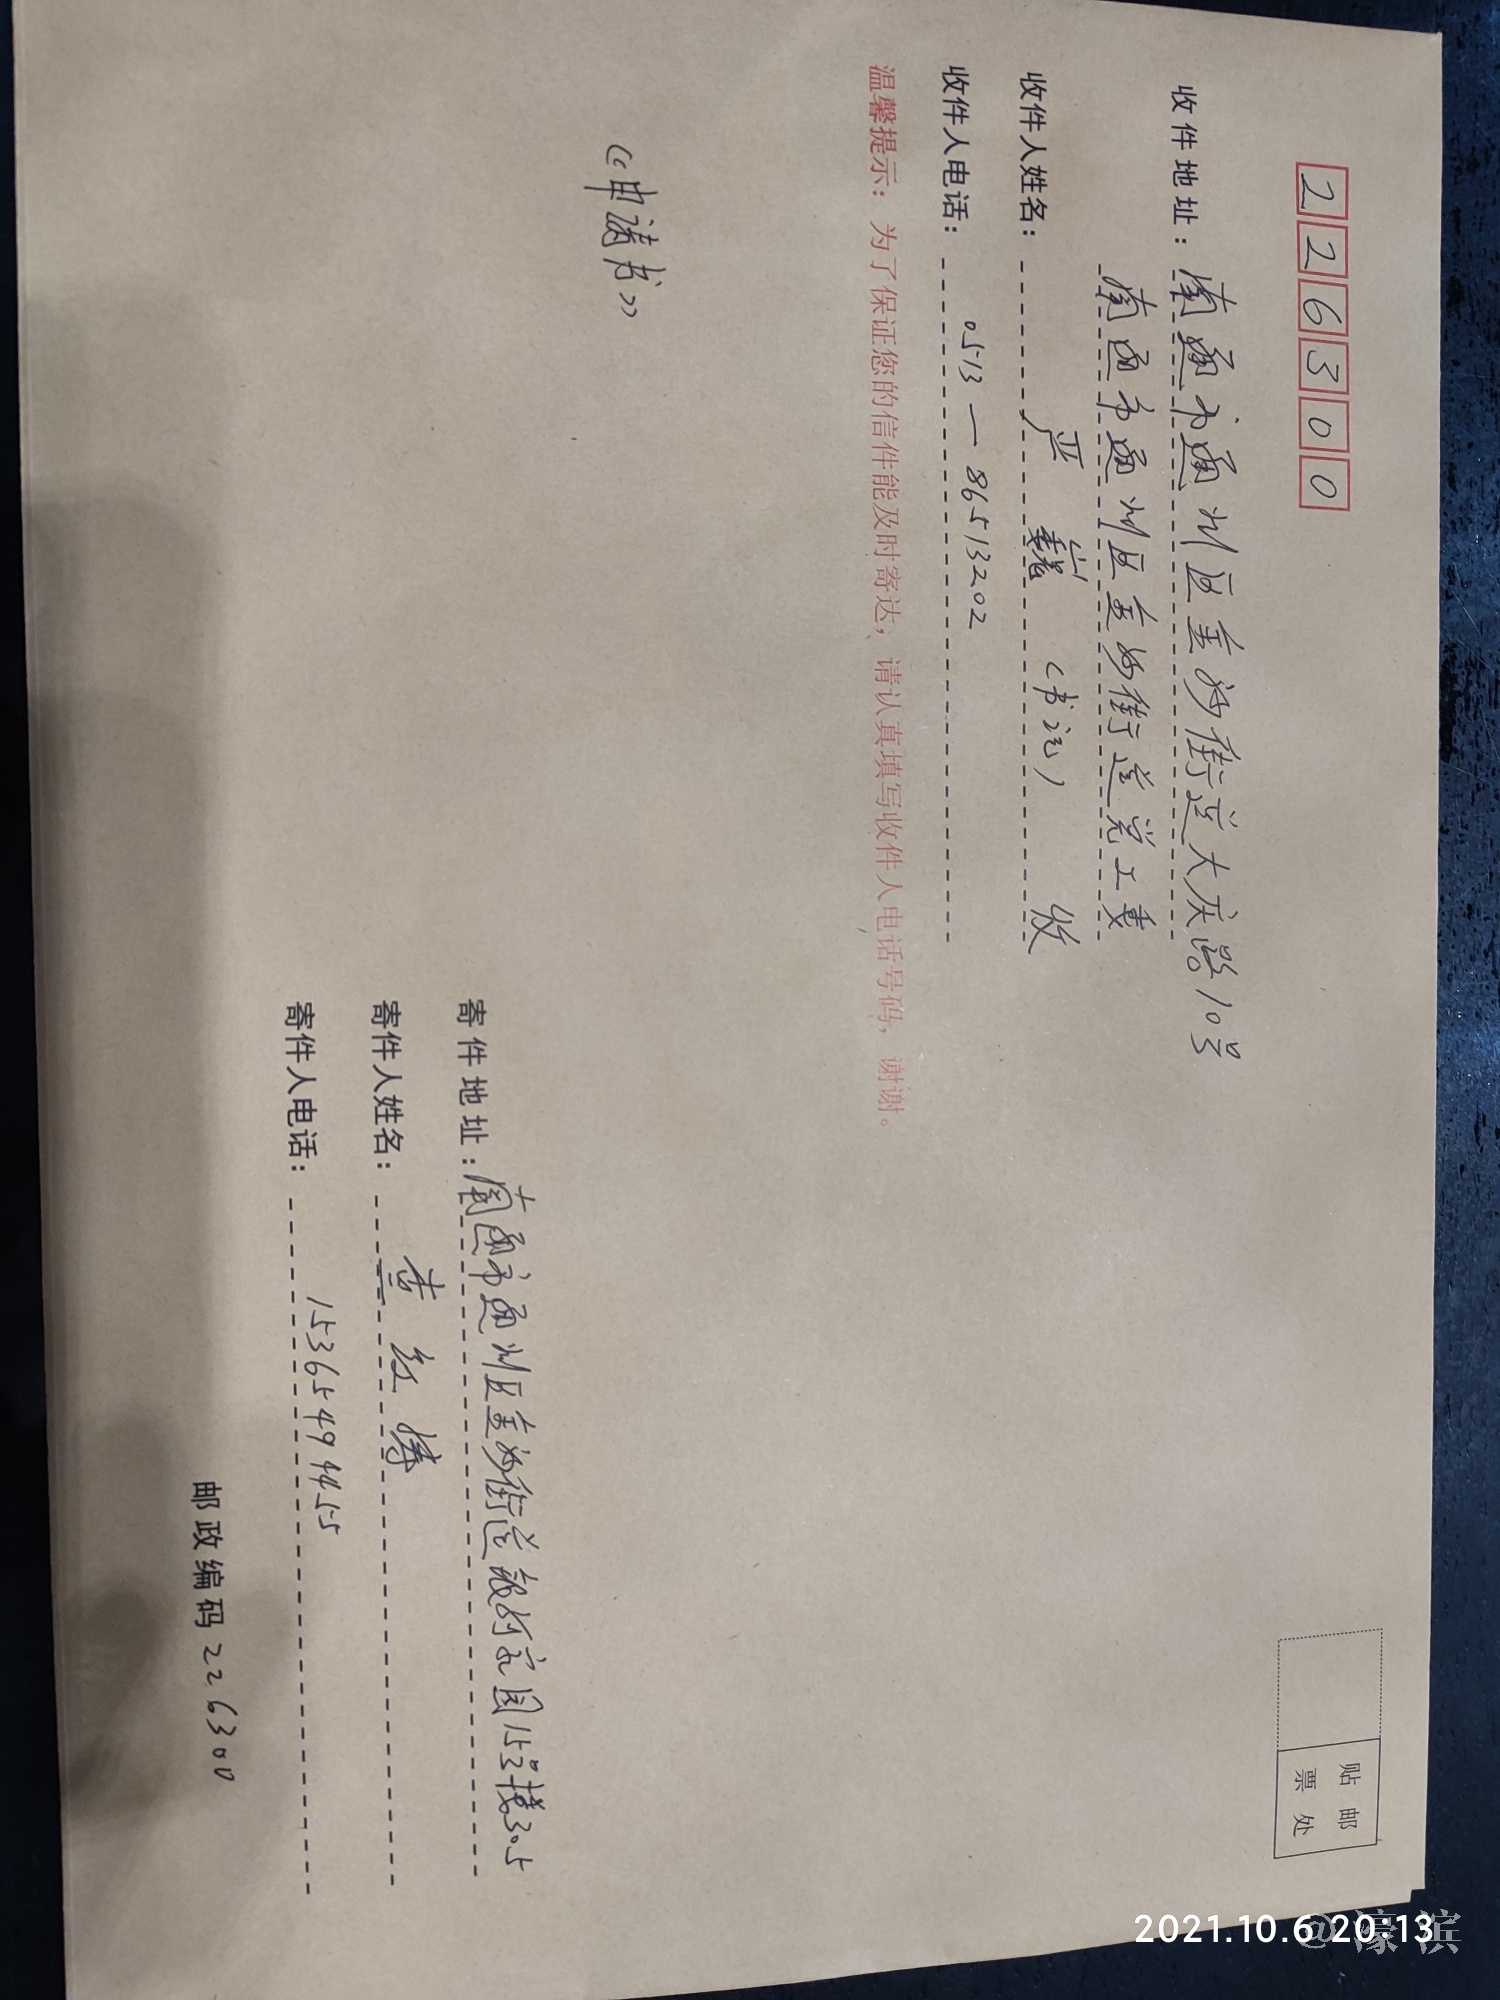 226300
收件地址：南通市通州区金沙街道大庆路10号
南通市通州区金沙街道党工委
收件人姓名：严巍（书记）收
收件人电话：0513—86513202
温馨提示：为了保证您的信件能及时寄达，请认真填写收件人电话号码，谢谢。
《申请书》
寄件地址：南通市通州区金沙街道 家园15号楼305
寄件人姓名：红
寄件人电话：15365499455
邮政编码226300
贴邮
票处
2021.10.6 20:13
@濠滨